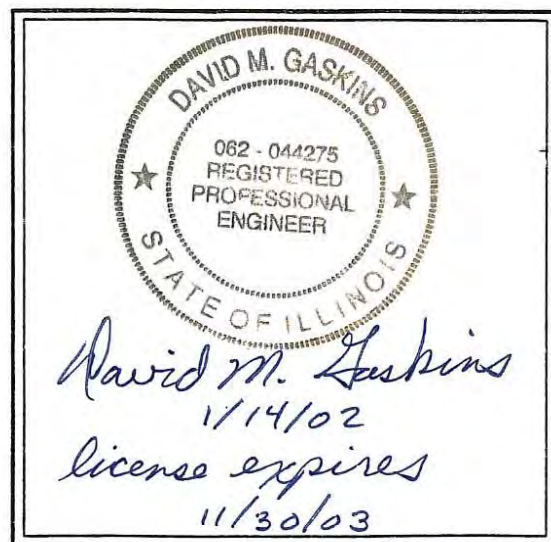 DAVID M. GASKINS
062-044275
REGISTERED
PROFESSIONAL
ENGINEER
STATE OF ILLINOIS
David M. Gaskins
1/14/02
license expires
11/30/03